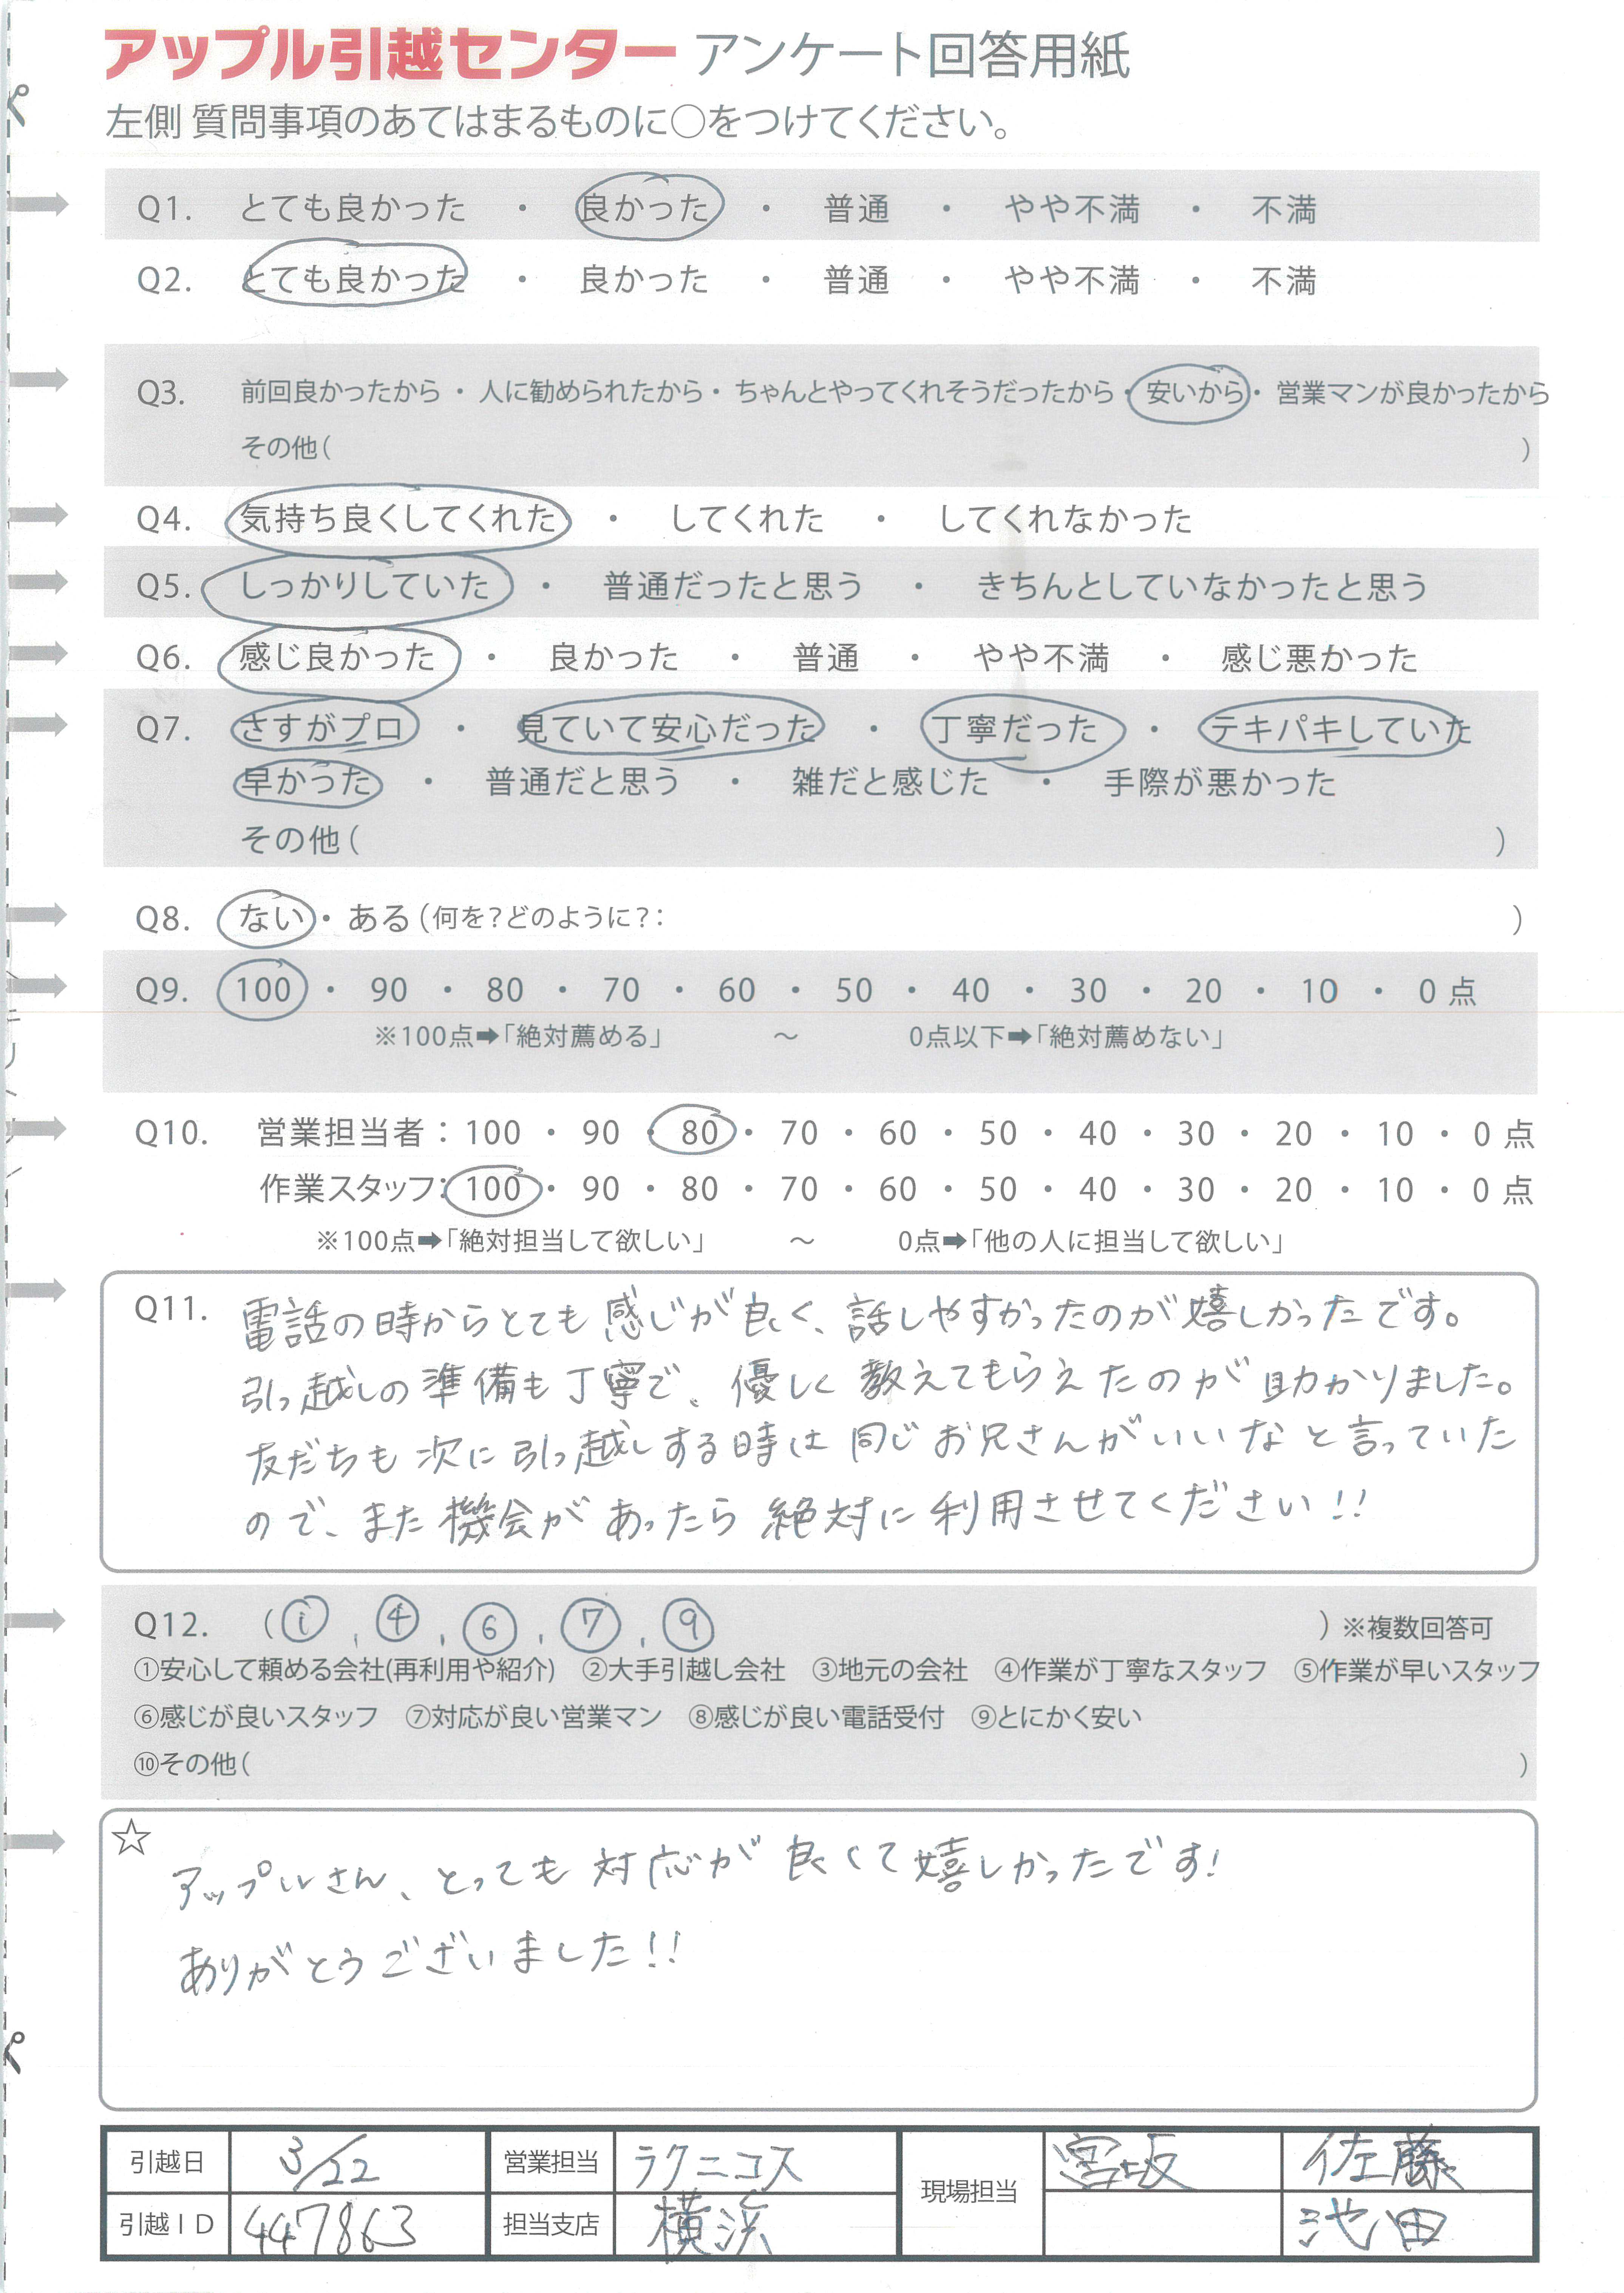 アップル引越センター アンケート回答用紙
左側 質問事項のあてはまるものに○をつけてください。
Q1. とても良かった ・ 良かった ・ 普通 ・ やや不満 ・ 不満
Q2. とても良かった ・ 良かった ・ 普通 ・ やや不満 ・ 不満
Q3. 前回良かったから ・ 人に勧められたから ・ ちゃんとやってくれそうだったから ・ 安いから ・ 営業マンが良かったから
その他( )
Q4. 気持ち良くしてくれた ・ してくれた ・ してくれなかった
Q5. しっかりしていた ・ 普通だったと思う ・ きちんとしていなかったと思う
Q6. 感じ良かった ・ 良かった ・ 普通 ・ やや不満 ・ 感じ悪かった
Q7. さすがプロ ・ 見ていて安心だった ・ 丁寧だった ・ テキパキしていた
早かった ・ 普通だと思う ・ 雑だと感じた ・ 手際が悪かった
その他( )
Q8. ない ・ ある(何を?どのように?: )
Q9. 100 ・ 90 ・ 80 ・ 70 ・ 60 ・ 50 ・ 40 ・ 30 ・ 20 ・ 10 ・ 0 点
※100点➡「絶対薦める」 〜 0点以下➡「絶対薦めない」
Q10. 営業担当者:100 ・ 90 ・ 80 ・ 70 ・ 60 ・ 50 ・ 40 ・ 30 ・ 20 ・ 10 ・ 0 点
作業スタッフ:100 ・ 90 ・ 80 ・ 70 ・ 60 ・ 50 ・ 40 ・ 30 ・ 20 ・ 10 ・ 0 点
※100点➡「絶対担当して欲しい」 〜 0点➡「他の人に担当して欲しい」
Q11. 電話の時からとても感じが良く、話しやすかったのが嬉しかったです。
引っ越しの準備も丁寧で、優しく教えてもらえたのが助かりました。
友だちも次に引っ越しする時は同じお兄さんがいいなと言っていた
ので、また機会があったら絶対に利用させてください!!
Q12. (①, ④, ⑥, ⑦, ⑨ )※複数回答可
①安心して頼める会社(再利用や紹介) ②大手引越し会社 ③地元の会社 ④作業が丁寧なスタッフ ⑤作業が早いスタッフ
⑥感じが良いスタッフ ⑦対応が良い営業マン ⑧感じが良い電話受付 ⑨とにかく安い
⑩その他( )
☆
アップルさん、とっても対応が良くて嬉しかったです!
ありがとうございました!!
引越日 3/22 営業担当 ラクニコス 現場担当 宮坂 佐藤
引越ID 447863 担当支店 横浜 池田